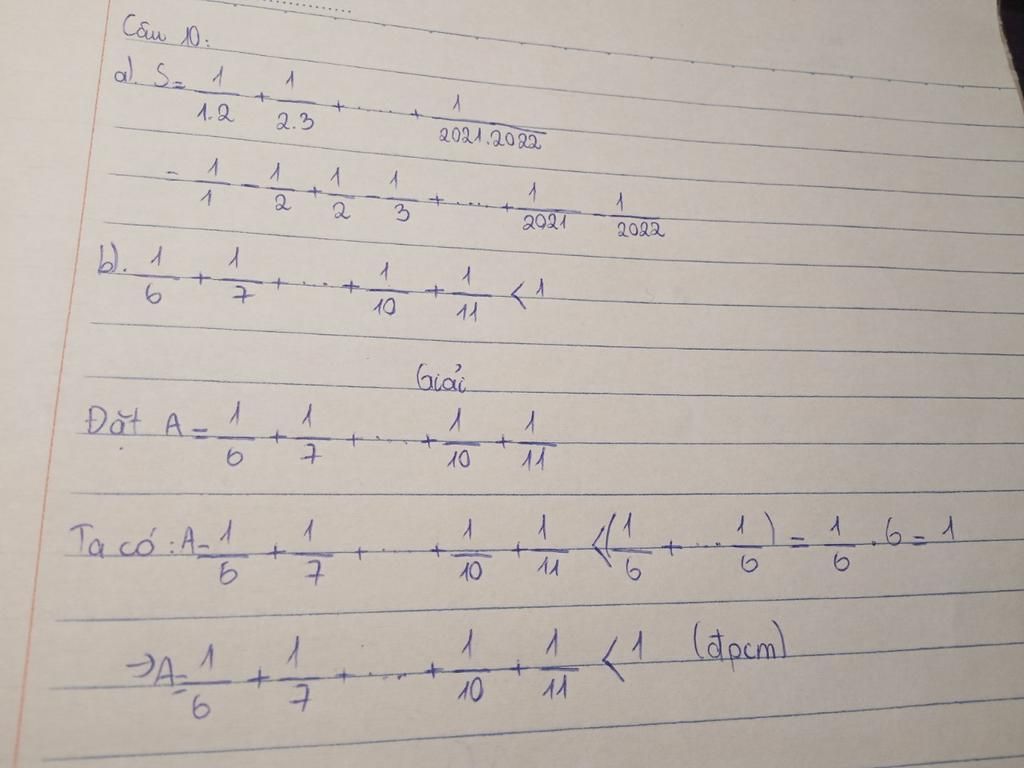 Câu 10:
a). S = 1/1.2 + 1/2.3 + ..... + 1/2021.2022
= 1/1 - 1/2 + 1/2 - 1/3 + ..... + 1/2021 - 1/2022
b). 1/6 + 1/7 + ... + 1/10 + 1/11 < 1
Giải
Đặt A = 1/6 + 1/7 + .... + 1/10 + 1/11
Ta có : A = 1/6 + 1/7 + .... + 1/10 + 1/11 < (1/6 + ... 1/6) = 1/6 . 6 = 1
→ A = 1/6 + 1/7 + .... + 1/10 + 1/11 < 1 (đpcm)